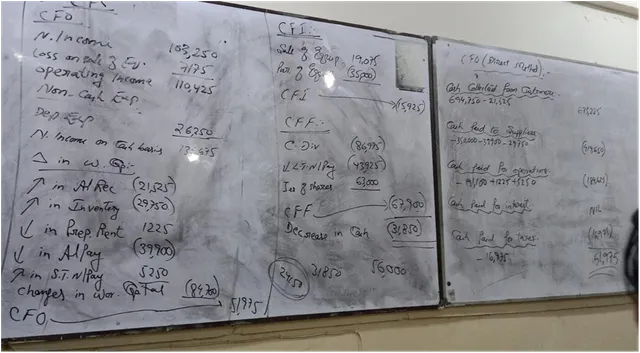 CFO
N. Income 103,250
Loss on Sale of Eq. 7175
Operating Income 110,425
Non-Cash Exp
Dep Exp 26,250
N. Income on Cash basis 136,675
Δ in W. Cap:-
↑ in A/Rec (21,525)
↑ in Inventory (29,750)
↓ in Prep Rent 1225
↓ in A/Pay (39,900)
↑ in S.T. N/Pay 5250
Changes in Wor. Capital (84,700)
CFO 51,975
CFI:-
Sale of Equip 19,075
Pur of Equip (35,000)
CFI (15,925)
CFF:-
C. Div (86,975)
↓ L.T. N/Pay (43,925)
Iss of shares 63,000
CFF (67,900)
Decrease in Cash (31,850)
2450 31850 56,000
CFO (Direct Method):-
Cash Collected from Customers:-
694,750 - 21,525 673,225
Cash Paid to Suppliers
Cash Paid for operations
- 191,100 + 1225 + 5250
Cash Paid for interest Nil
Cash Paid for taxes
- 16,975 (16,975)
51,975